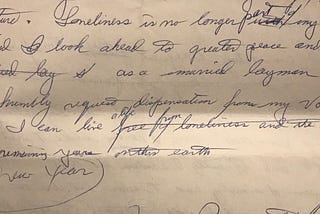 Loneliness is no longer part of my
I look ahead to greater peace and
as a married layman
humbly request dispensation from my vo
I can live a life free from loneliness and the
remaining years on this earth
New Year)